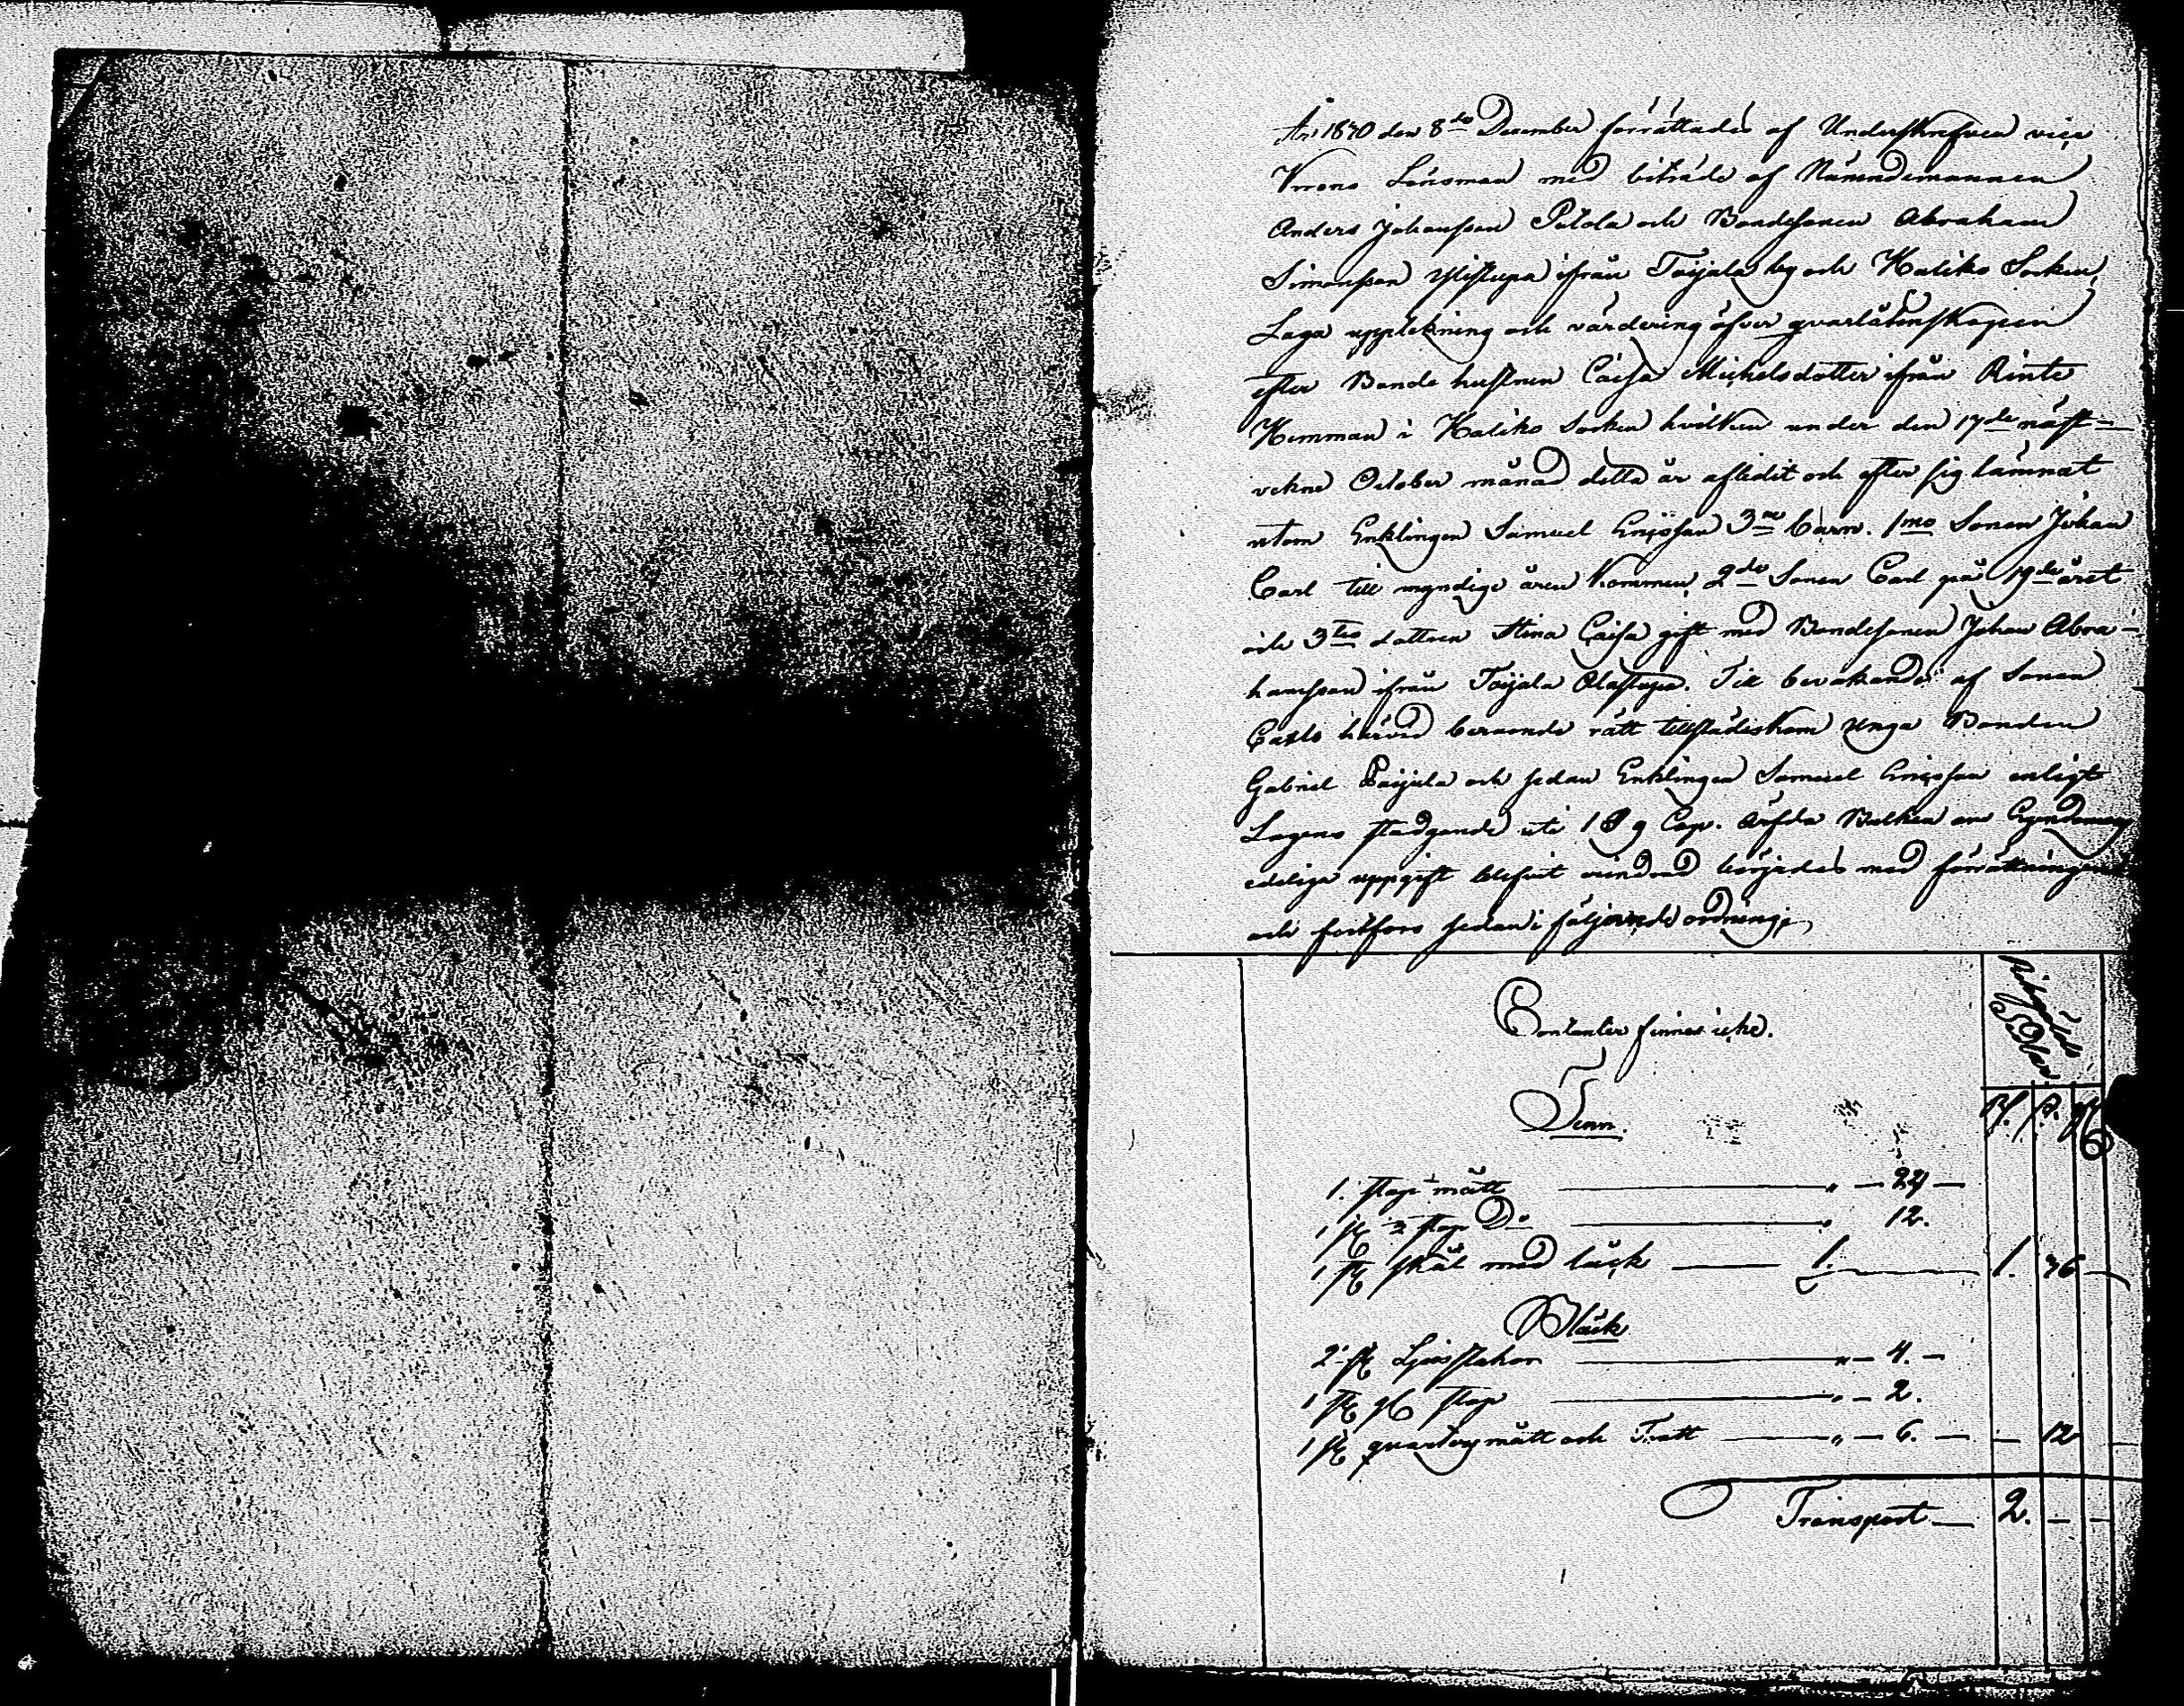 År 1810 den 8de December förrättades af Underskrefven vice
Krono Länsman med biträde af Nämndemannen
Anders Johansson Pelola och Bondesonen Abraham
Simonsson ifrån Toijala by och Haliko Socken,
Laga uppteckning och värdering öfver qvarlåtenskapen
efter Bonde hustrun Caisa Michelsdotter ifrån Rinte
Hemman i Haliko Socken hvilken under den 17de näst-
vekne October månad detta år aflidit och efter sig lämnat
utom Enklingen Samuel Ericsson 3ne barn. 1mo Sonen Johan
Carl till myndige åren kommen, 2do Sonen Carl på 19de året
och 3tio dottren Stina Caisa gift med Bondesonen Johan Abra-
hamsson ifrån Toijala Olastupa. Till bevakande af Sonen
Carls härvid beroende rätt tillstädeskom unga Bonden
Gabriel Toijala och sedan Enklingen Samuel Ericsson enligt
Lagens stadgande uti 9 Cap. Ärfda Balken om
edeliga uppgift blifvit börjades med förrättningen
och fortfors sedan i följande ordning;
Contanter finnes icke.
Tenn.
1. stop mått " - 24 -
1 st ½ stop Do " 12.
1 st skål med läck 1. 1. 36 -
Bläck
2 st Ljusstakar " - 4. -
1 st stop " - 2.
1 st qvarters mått och Tratt " - 6. - - 12 -
Transport 2. - -